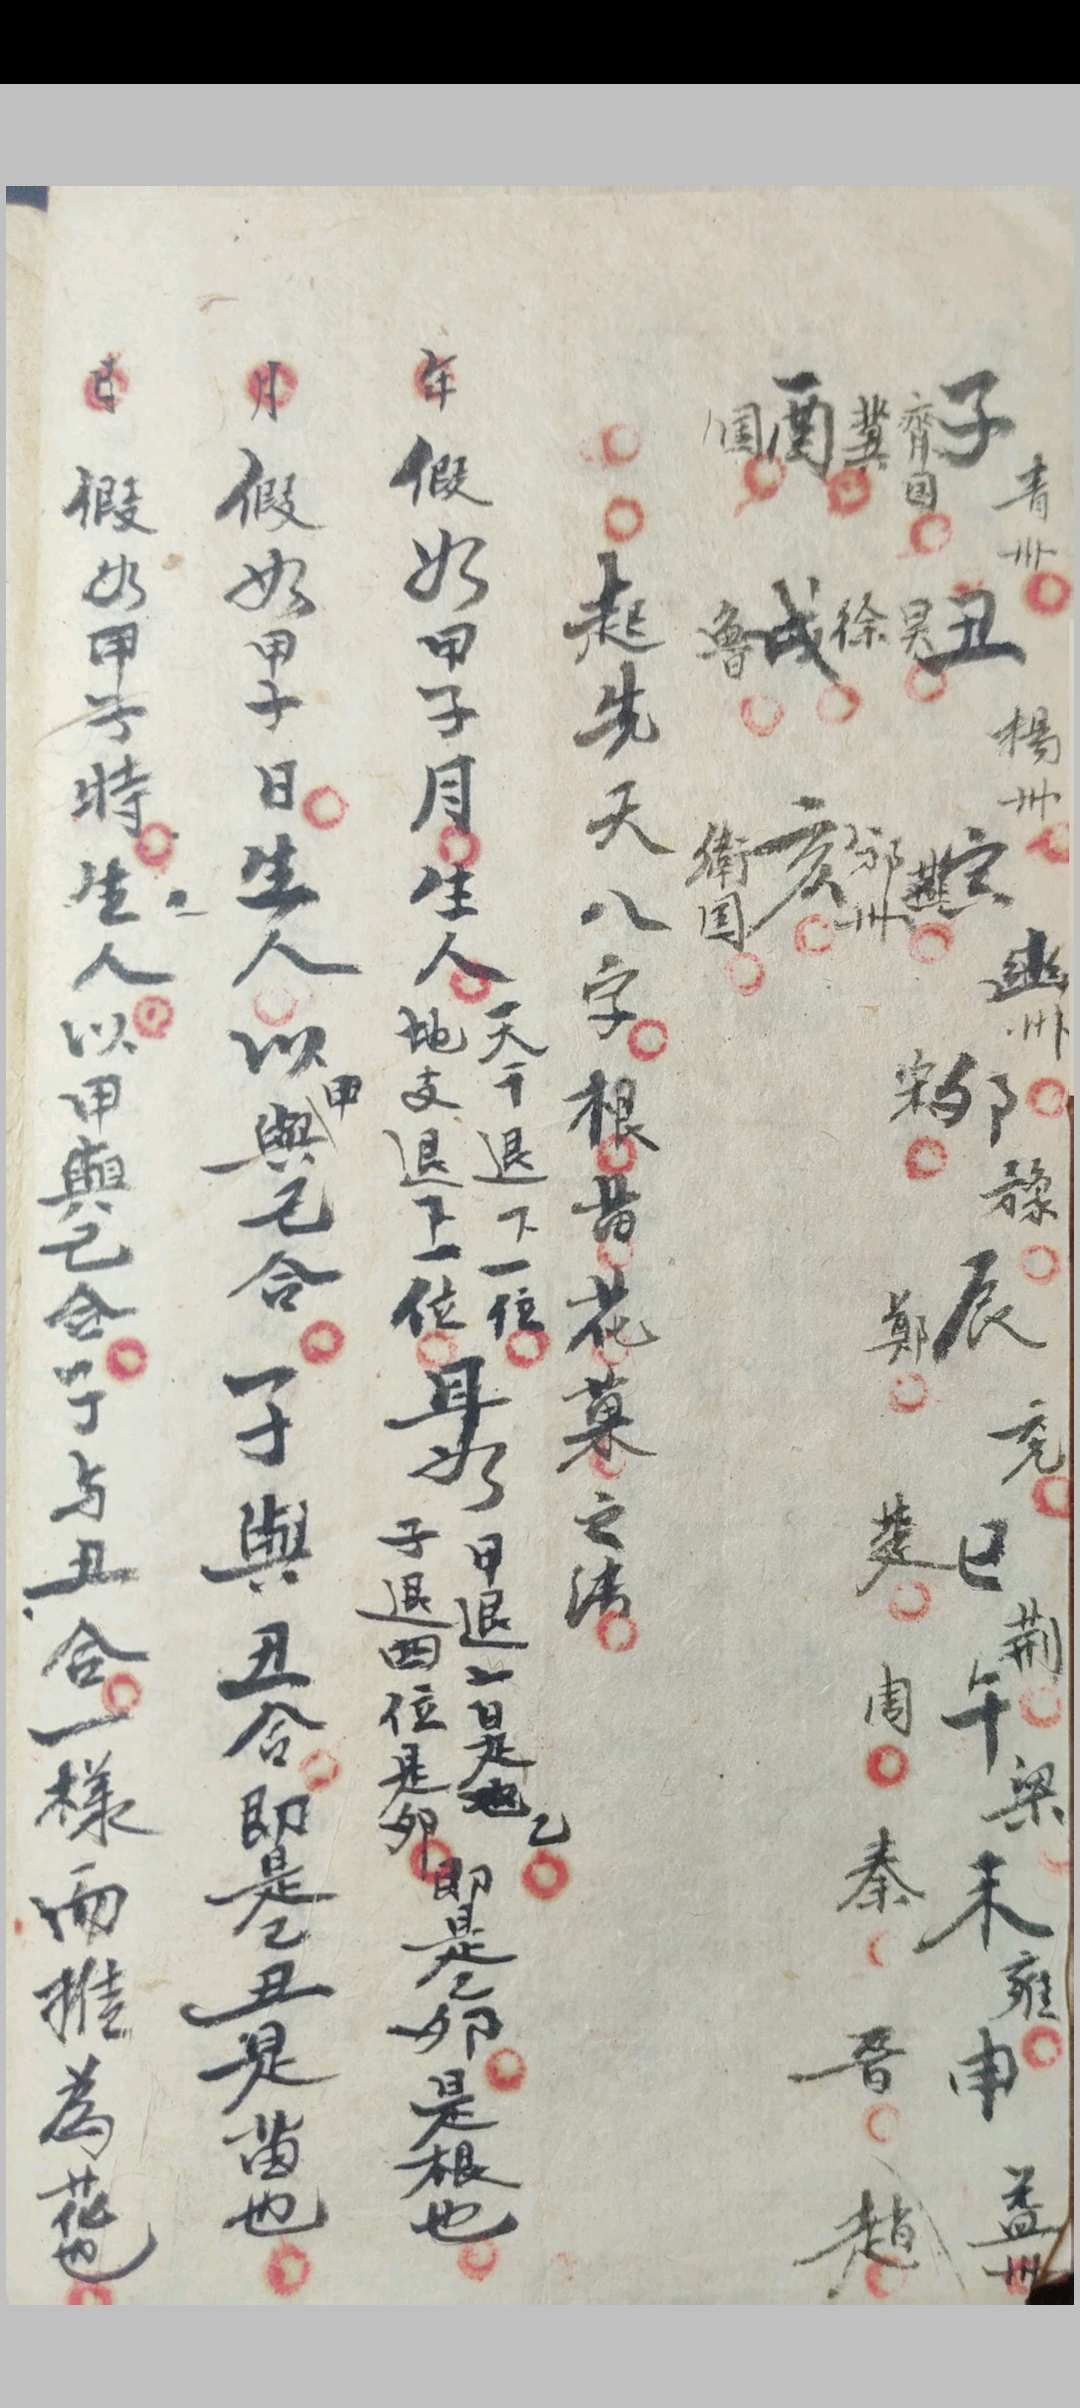 青州 楊州 幽州 豫 兗 荊 梁 雍 益州
子 丑 寅 卯 辰 巳 午 未 申
齊国 吴 燕 宋 鄭 楚 周 秦 晋 趙
冀 徐 邠州
酉 戌 亥
国 魯 衛国
起先天八字根苗花菓之法
年 假如甲子月生人 天干退下一位
地支退下一位 耳如 甲退一日是也乙
子退四位是卯 即是乙卯是根也
月 假如甲子日生人以甲與己合子與丑合即是乙丑是苗也
日 假如甲子時生人以甲與己合子与丑合一樣而推為花也